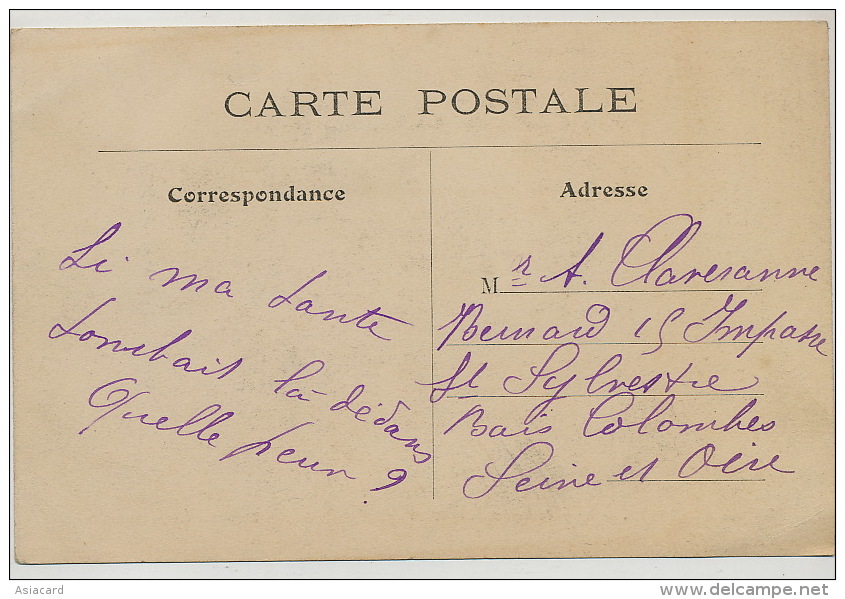 CARTE POSTALE
Correspondance
Si ma tante
tombait là dedans
Quelle peur ?
Adresse
M r A. Claresanne
Bernard 15 Impasse
St Sylvestre
Bois Colombes
Seine et Oise
Asiacard
www.delcampe.net